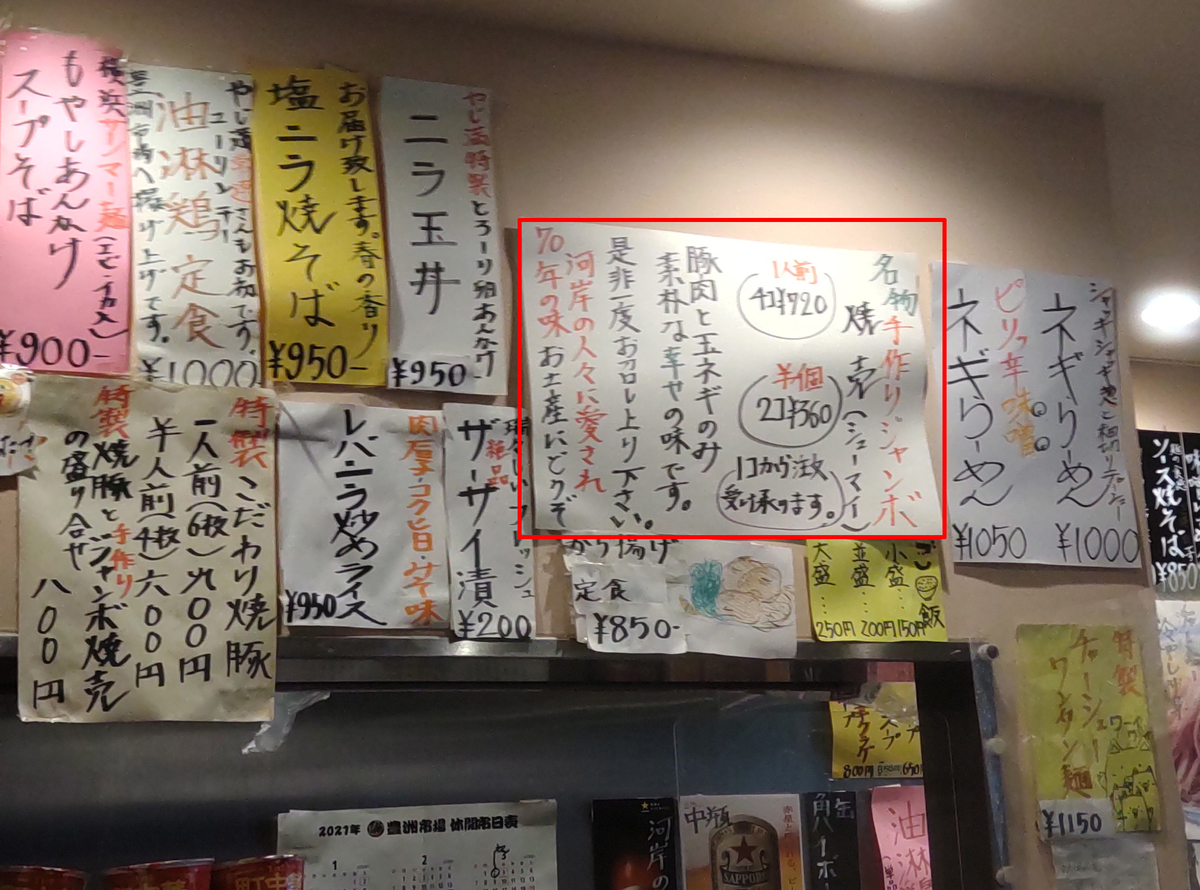 横浜サンマー麺(エビ・イカ入)
もやしあんかけ
スープそば
¥900-
油淋鶏定食
豊洲市場へ揚げ上げです。
¥1000
お届け致します。春の香り
塩ニラ焼そば
¥950-
とろーり卵あんかけ
ニラ玉丼
¥950-
名物手作りジャンボ
焼売(シューマイ)
1人前
4コ¥720
半個
2コ¥360
1コから注文
受け承ります。
豚肉と玉ネギのみ
素朴な幸やの味です。
是非一度お召し上り下さい。
河岸の人々に愛され
70年の味お土産にどうぞ
ネギらーめん
¥1000
ピリッ辛味噌
ネギらーめん
¥1050
特製こだわり焼豚
一人前(6枚)九〇〇円
半人前(4枚)六〇〇円
特製焼豚と手作りジャンボ焼売
の盛り合せ
八〇〇円
肉厚子・コク旨・みそ味
レバニラ炒めライス
¥950
絶品
ザーサイ漬
¥200
から揚げ
定食
¥850-
小盛
並盛
大盛
飯
250円
200円
150円
ソース焼そば
¥850
特製
チャーシュー
ワンタン麺
¥1150
スープ
キクラゲ
800円
650
2021年 豊洲市場 休開市日表
1
2
3
河岸の
中瓶
SAPPORO
角ハイボ
缶
油淋